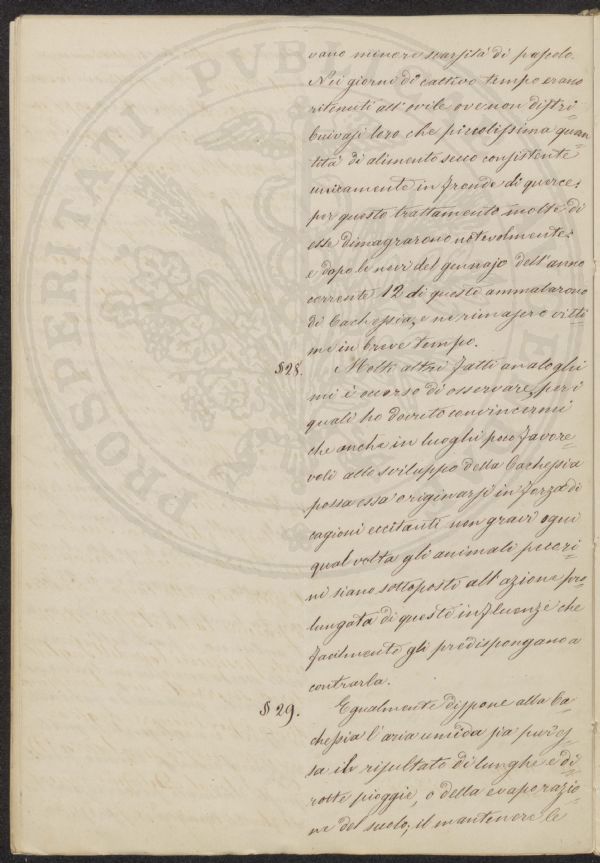 vano minore scarsità di pascolo.
Nei giorni di cattivo tempo erano
ritenuti all'ovile ove non distri
buivasi loro che piccolissima quan
tità di alimento secco consistente
unicamente in fronde di querce;
per questo trattamento molte di
esse dimagrarono notevolmente:
e dopo le nevi del gennajo dell'anno
corrente 12 di queste ammalarono
di Cachessia, e ne rimasero vitti
me in breve tempo.
§28. Molti altri fatti analoghi
mi è occorso di osservare, per i
quali ho dovuto convincermi
che anche in luoghi poco favore
voli allo sviluppo della Cachessia
possa essa originarsi in forza di
cagioni eccitanti non gravi ogni
qual volta gli animali pecori
ni siano sottoposti all'azione pro
lungata di queste influenze che
facilmente gli predispongano a
contrarla.
§29. Egualmente dispone alla Ca
chessia l'aria umida sia pur es
sa il risultato di lunghe e di
rotte pioggie, o della evaporazio
ne del suolo; il mantenere le
PROSPERITATI PVBL